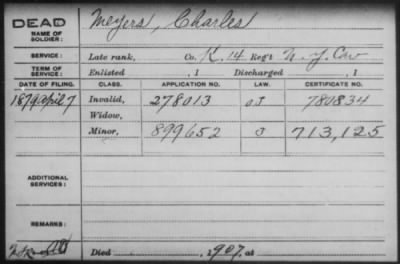 DEAD Meyers, Charles
NAME OF SOLDIER:
SERVICE: Late rank, Co. K. 14 Reg't N.Y. Cav
TERM OF SERVICE: Enlisted , 1 Discharged , 1
DATE OF FILING. CLASS. APPLICATION NO. LAW. CERTIFICATE NO.
1879 April 7 Invalid, 278013 780834
Widow,
Minor, 899652 713,125
ADDITIONAL SERVICES:
REMARKS:
Died , 1907, at